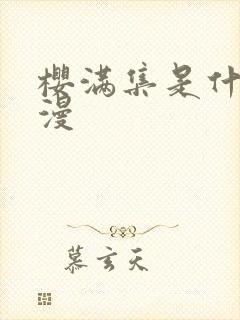 櫻满集是什
漫
慕玄天